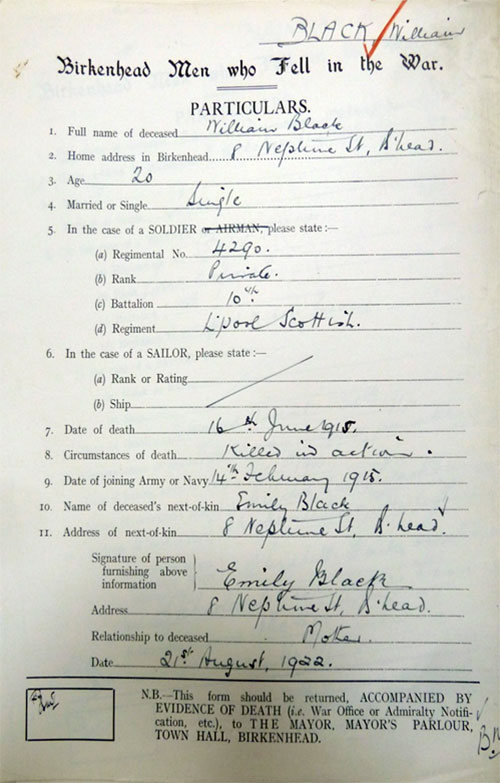 BLACK, William
Birkenhead Men who Fell in the War.
PARTICULARS.
1. Full name of deceased William Black
2. Home address in Birkenhead 8 Neptune St, B'head.
3. Age 20
4. Married or Single Single
5. In the case of a SOLDIER or AIRMAN, please state :—
(a) Regimental No. 4290.
(b) Rank Private.
(c) Battalion 10th
(d) Regiment L'pool Scottish.
6. In the case of a SAILOR, please state :—
(a) Rank or Rating
(b) Ship
7. Date of death 16th June 1915.
8. Circumstances of death Killed in action.
9. Date of joining Army or Navy 14th February 1915.
10. Name of deceased's next-of-kin Emily Black
11. Address of next-of-kin 8 Neptune St, B'head.
Signature of person
furnishing above
information Emily Black
Address 8 Neptune St, B'head.
Relationship to deceased Mother.
Date 21st August, 1922.
N.B.—This form should be returned, ACCOMPANIED BY
EVIDENCE OF DEATH (i.e. War Office or Admiralty Notifi-
cation, etc.), to THE MAYOR, MAYOR'S PARLOUR,
TOWN HALL, BIRKENHEAD.